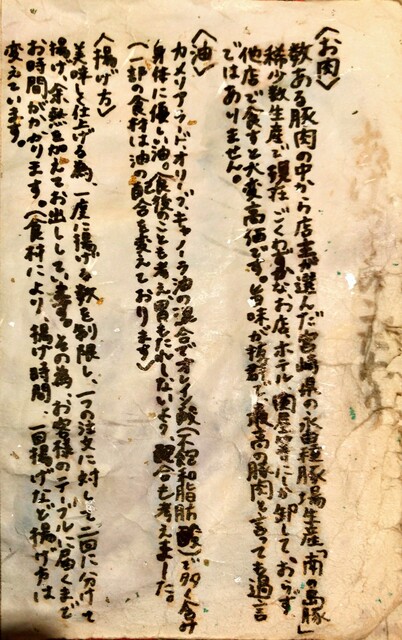 〈お肉〉
数ある豚肉の中から店主が選んだ宮崎県の永田種豚場生産「南の島豚」
稀少数生産で現在、ごくわずかなお店、ホテル、問屋等にしか卸しておらず
他店で食すと大変高価です。旨味が抜群で、最高の豚肉と言っても過言
ではありません。
〈油〉
カメリアラード、オリーブ、キャノーラ油の混合でオレイン酸(不飽和脂肪酸)を多く含み
身体に優しい油。食後のことも考え胃もたれしないよう、配合も考えました。
(一部の食材は油の配合を変えております)
〈揚げ方〉
美味しく仕上げる為、一度に揚げる数を制限し、一つの注文に対して二回に分けて
揚げ、余熱を加えてお出ししています。その為、お客様のテーブルに届くまで
お時間がかかります。(食材により、揚げ時間、一回揚げなど揚げ方は
変えています。